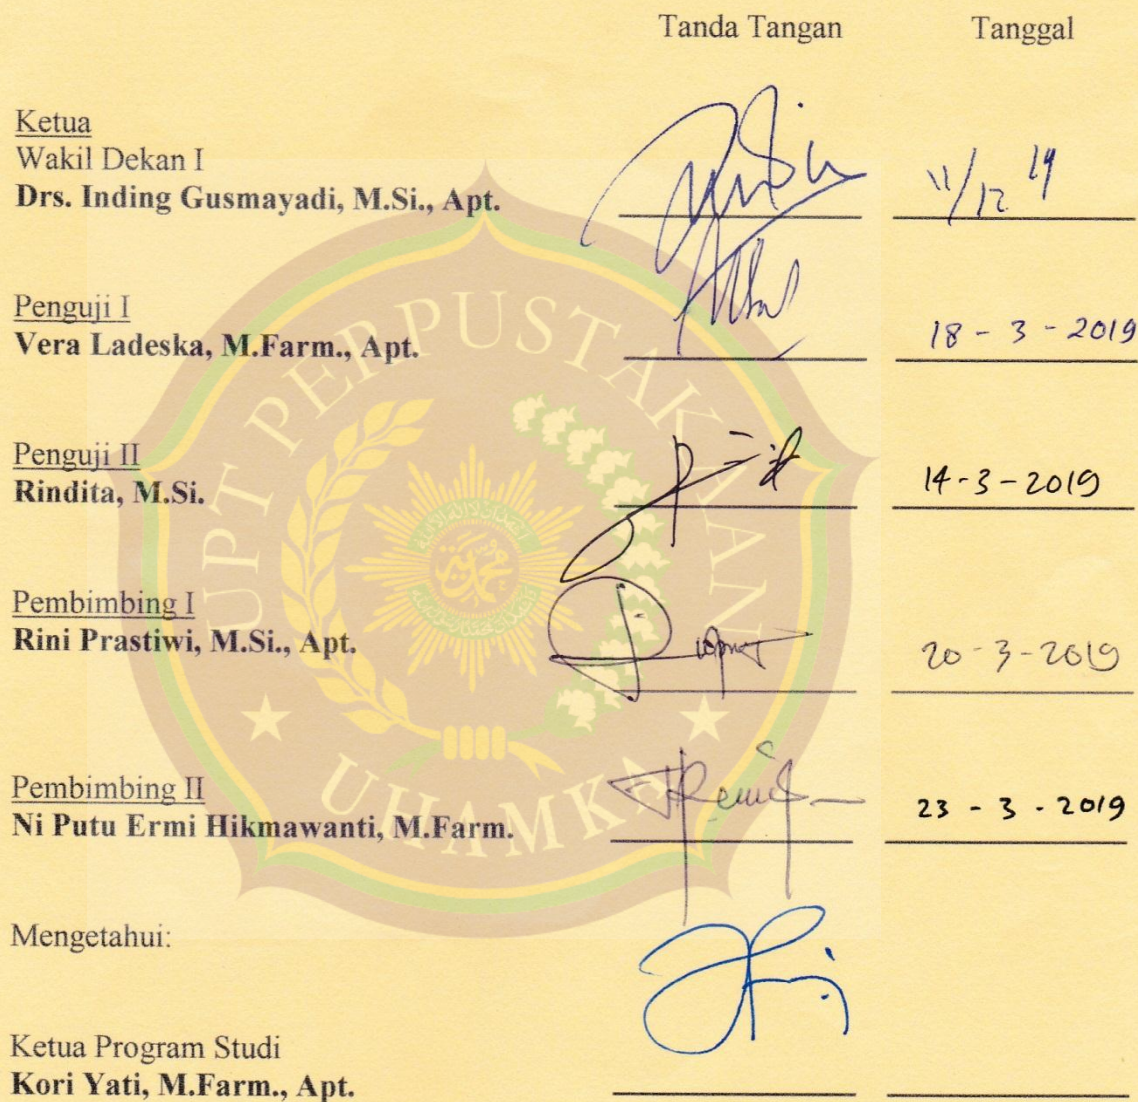 Tanda Tangan Tanggal
Ketua
Wakil Dekan I
Drs. Inding Gusmayadi, M.Si., Apt.
11/12 19
Penguji I
Vera Ladeska, M.Farm., Apt.
18 - 3 - 2019
Penguji II
Rindita, M.Si.
14-3-2019
Pembimbing I
Rini Prastiwi, M.Si., Apt.
20-3-2019
Pembimbing II
Ni Putu Ermi Hikmawanti, M.Farm.
23 - 3 - 2019
Mengetahui:
Ketua Program Studi
Kori Yati, M.Farm., Apt.
UPT PERPUSTAKAAN
UHAMKA